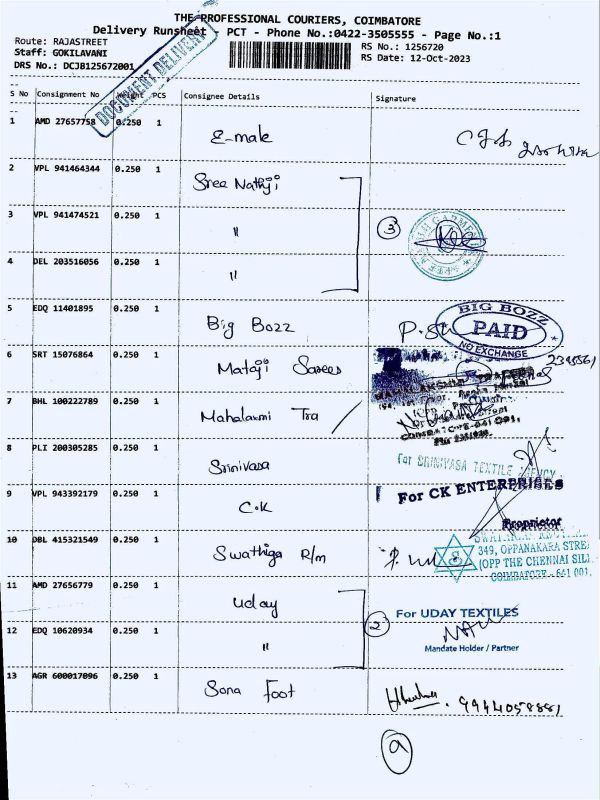 THE PROFESSIONAL COURIERS, COIMBATORE
Delivery Runsheet - PCT - Phone No.:0422-3505555 - Page No.:1
Route: RAJASTREET
RS No.: 1256720
Staff: GOKILAVANI
RS Date: 12-Oct-2023
DRS No.: DCJB125672001
DOCUMENT DELIVERY
S No Consignment No Weight PCS Consignee Details Signature
1 AMD 27657758 0.250 1 E-male
2 VPL 941464344 0.250 1 Sree Nathji
3 VPL 941474521 0.250 1 " 3
4 DEL 203516056 0.250 1 "
5 EDQ 11401895 0.250 1 Big Bozz
BIG BOZZ
PAID
NO EXCHANGE
6 SRT 15076864 0.250 1 Mataji Sarees
7 BHL 100222789 0.250 1 Mahalaxmi Tra
COIMBATORE-641 001.
8 PLI 200305285 0.250 1 Srinivasa
For SRINIVASA TEXTILE AGENCY
9 VPL 943392179 0.250 1 C.K
For CK ENTERPRISES
Proprietor
10 DBL 415321549 0.250 1 Swathiga R/m
349, OPPANAKARA STRE
(OPP THE CHENNAI SIL
COIMBATORE - 641 001.
11 AMD 27656779 0.250 1 Uday
For UDAY TEXTILES
2
12 EDQ 10620934 0.250 1 "
Mandate Holder / Partner
13 AGR 600017096 0.250 1 Sona Foot
9944058881
9